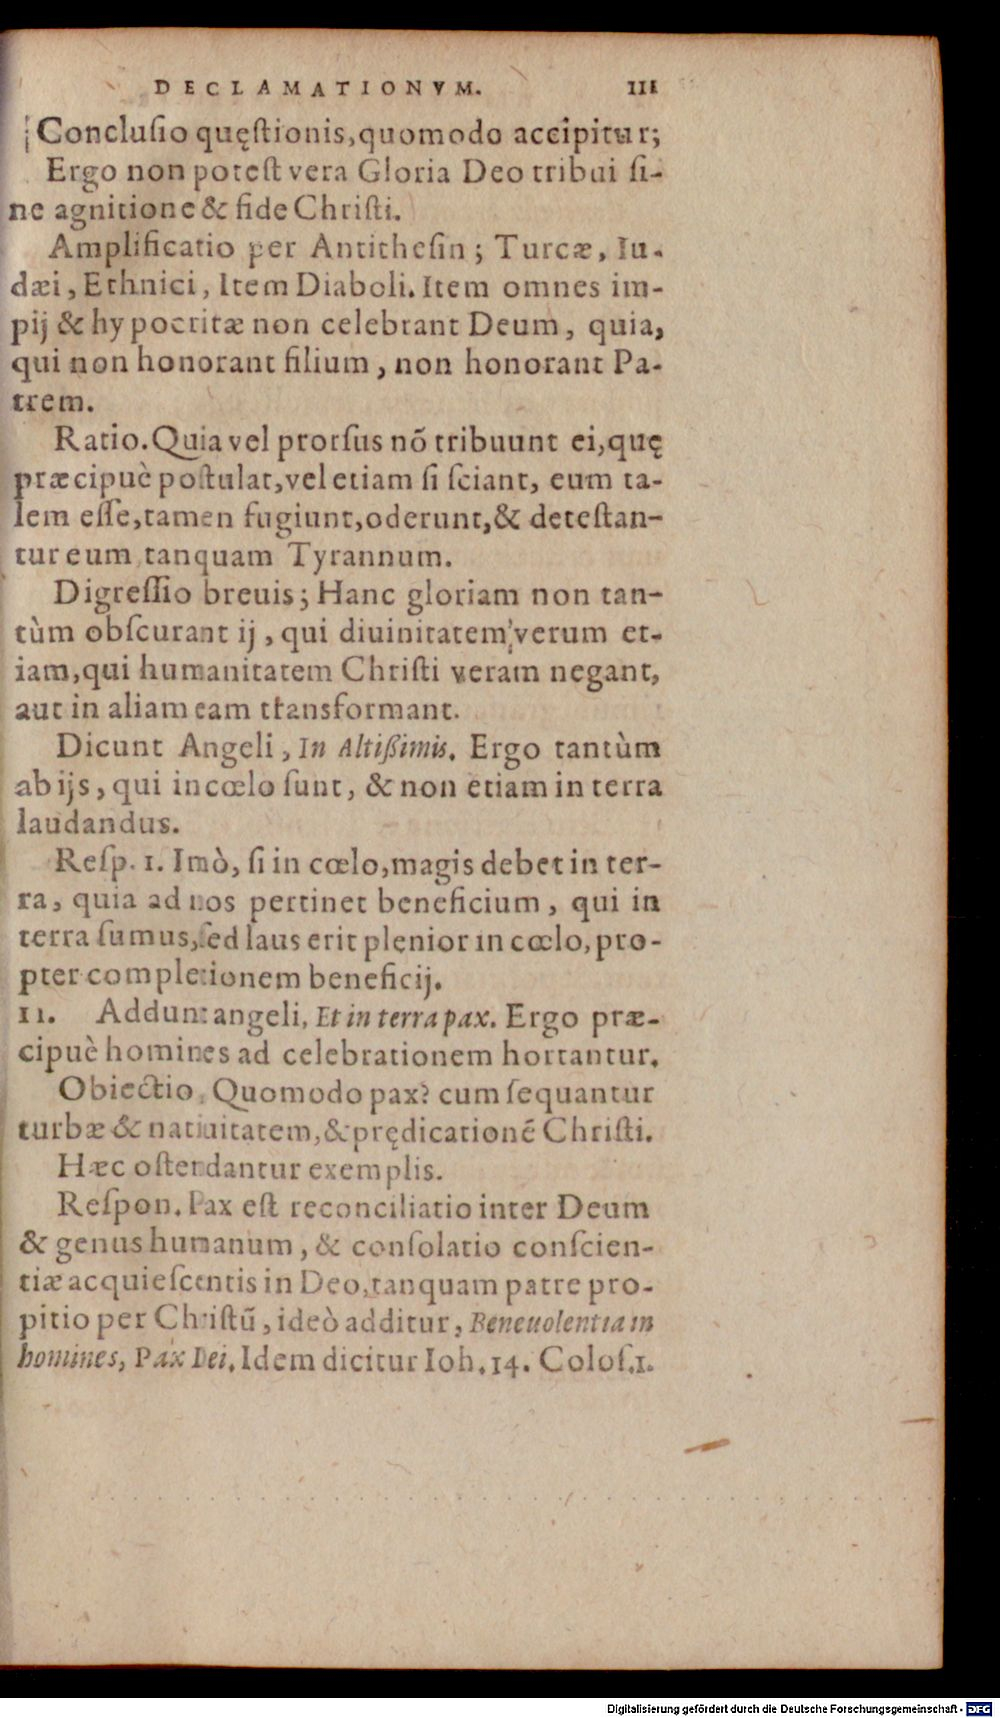 DECLAMATIONVM. 111
Concluſio quęſtionis, quomodo accipitur;
Ergo non poteſt vera Gloria Deo tribui ſi-
ne agnitione & fide Chriſti.
Amplificatio per Antitheſin; Turcæ, Iu-
dæi, Ethnici, Item Diaboli. Item omnes im-
pij & hypocritæ non celebrant Deum, quia,
qui non honorant filium, non honorant Pa-
trem.
Ratio. Quia vel prorſus nō tribuunt ei, quę
præcipuè poſtulat, vel etiam ſi ſciant, eum ta-
lem eſſe, tamen fugiunt, oderunt, & deteſtan-
tur eum tanquam Tyrannum.
Digreſſio breuis; Hanc gloriam non tan-
tùm obſcurant ij, qui diuinitatem, verum et-
iam, qui humanitatem Chriſti veram negant,
aut in aliam eam transformant.
Dicunt Angeli, In Altißimis. Ergo tantùm
ab ijs, qui in cœlo ſunt, & non etiam in terra
laudandus.
Reſp. 1. Imò, ſi in cœlo, magis debet in ter-
ra, quia ad nos pertinet beneficium, qui in
terra ſumus, ſed laus erit plenior in cœlo, pro-
pter completionem beneficij.
11. Addunt angeli, Et in terra pax. Ergo præ-
cipuè homines ad celebrationem hortantur.
Obiectio. Quomodo pax? cum ſequantur
turbæ & natiuitatem, & prędicationē Chriſti.
Hæc oſtendantur exemplis.
Reſpon. Pax eſt reconciliatio inter Deum
& genus humanum, & conſolatio conſcien-
tiæ acquieſcentis in Deo, tanquam patre pro-
pitio per Chriſtū, ideò additur, Beneuolentia in
homines, Pax Dei. Idem dicitur Ioh. 14. Coloſ. 1.
Digitalisierung gefördert durch die Deutsche Forschungsgemeinschaft - DFG